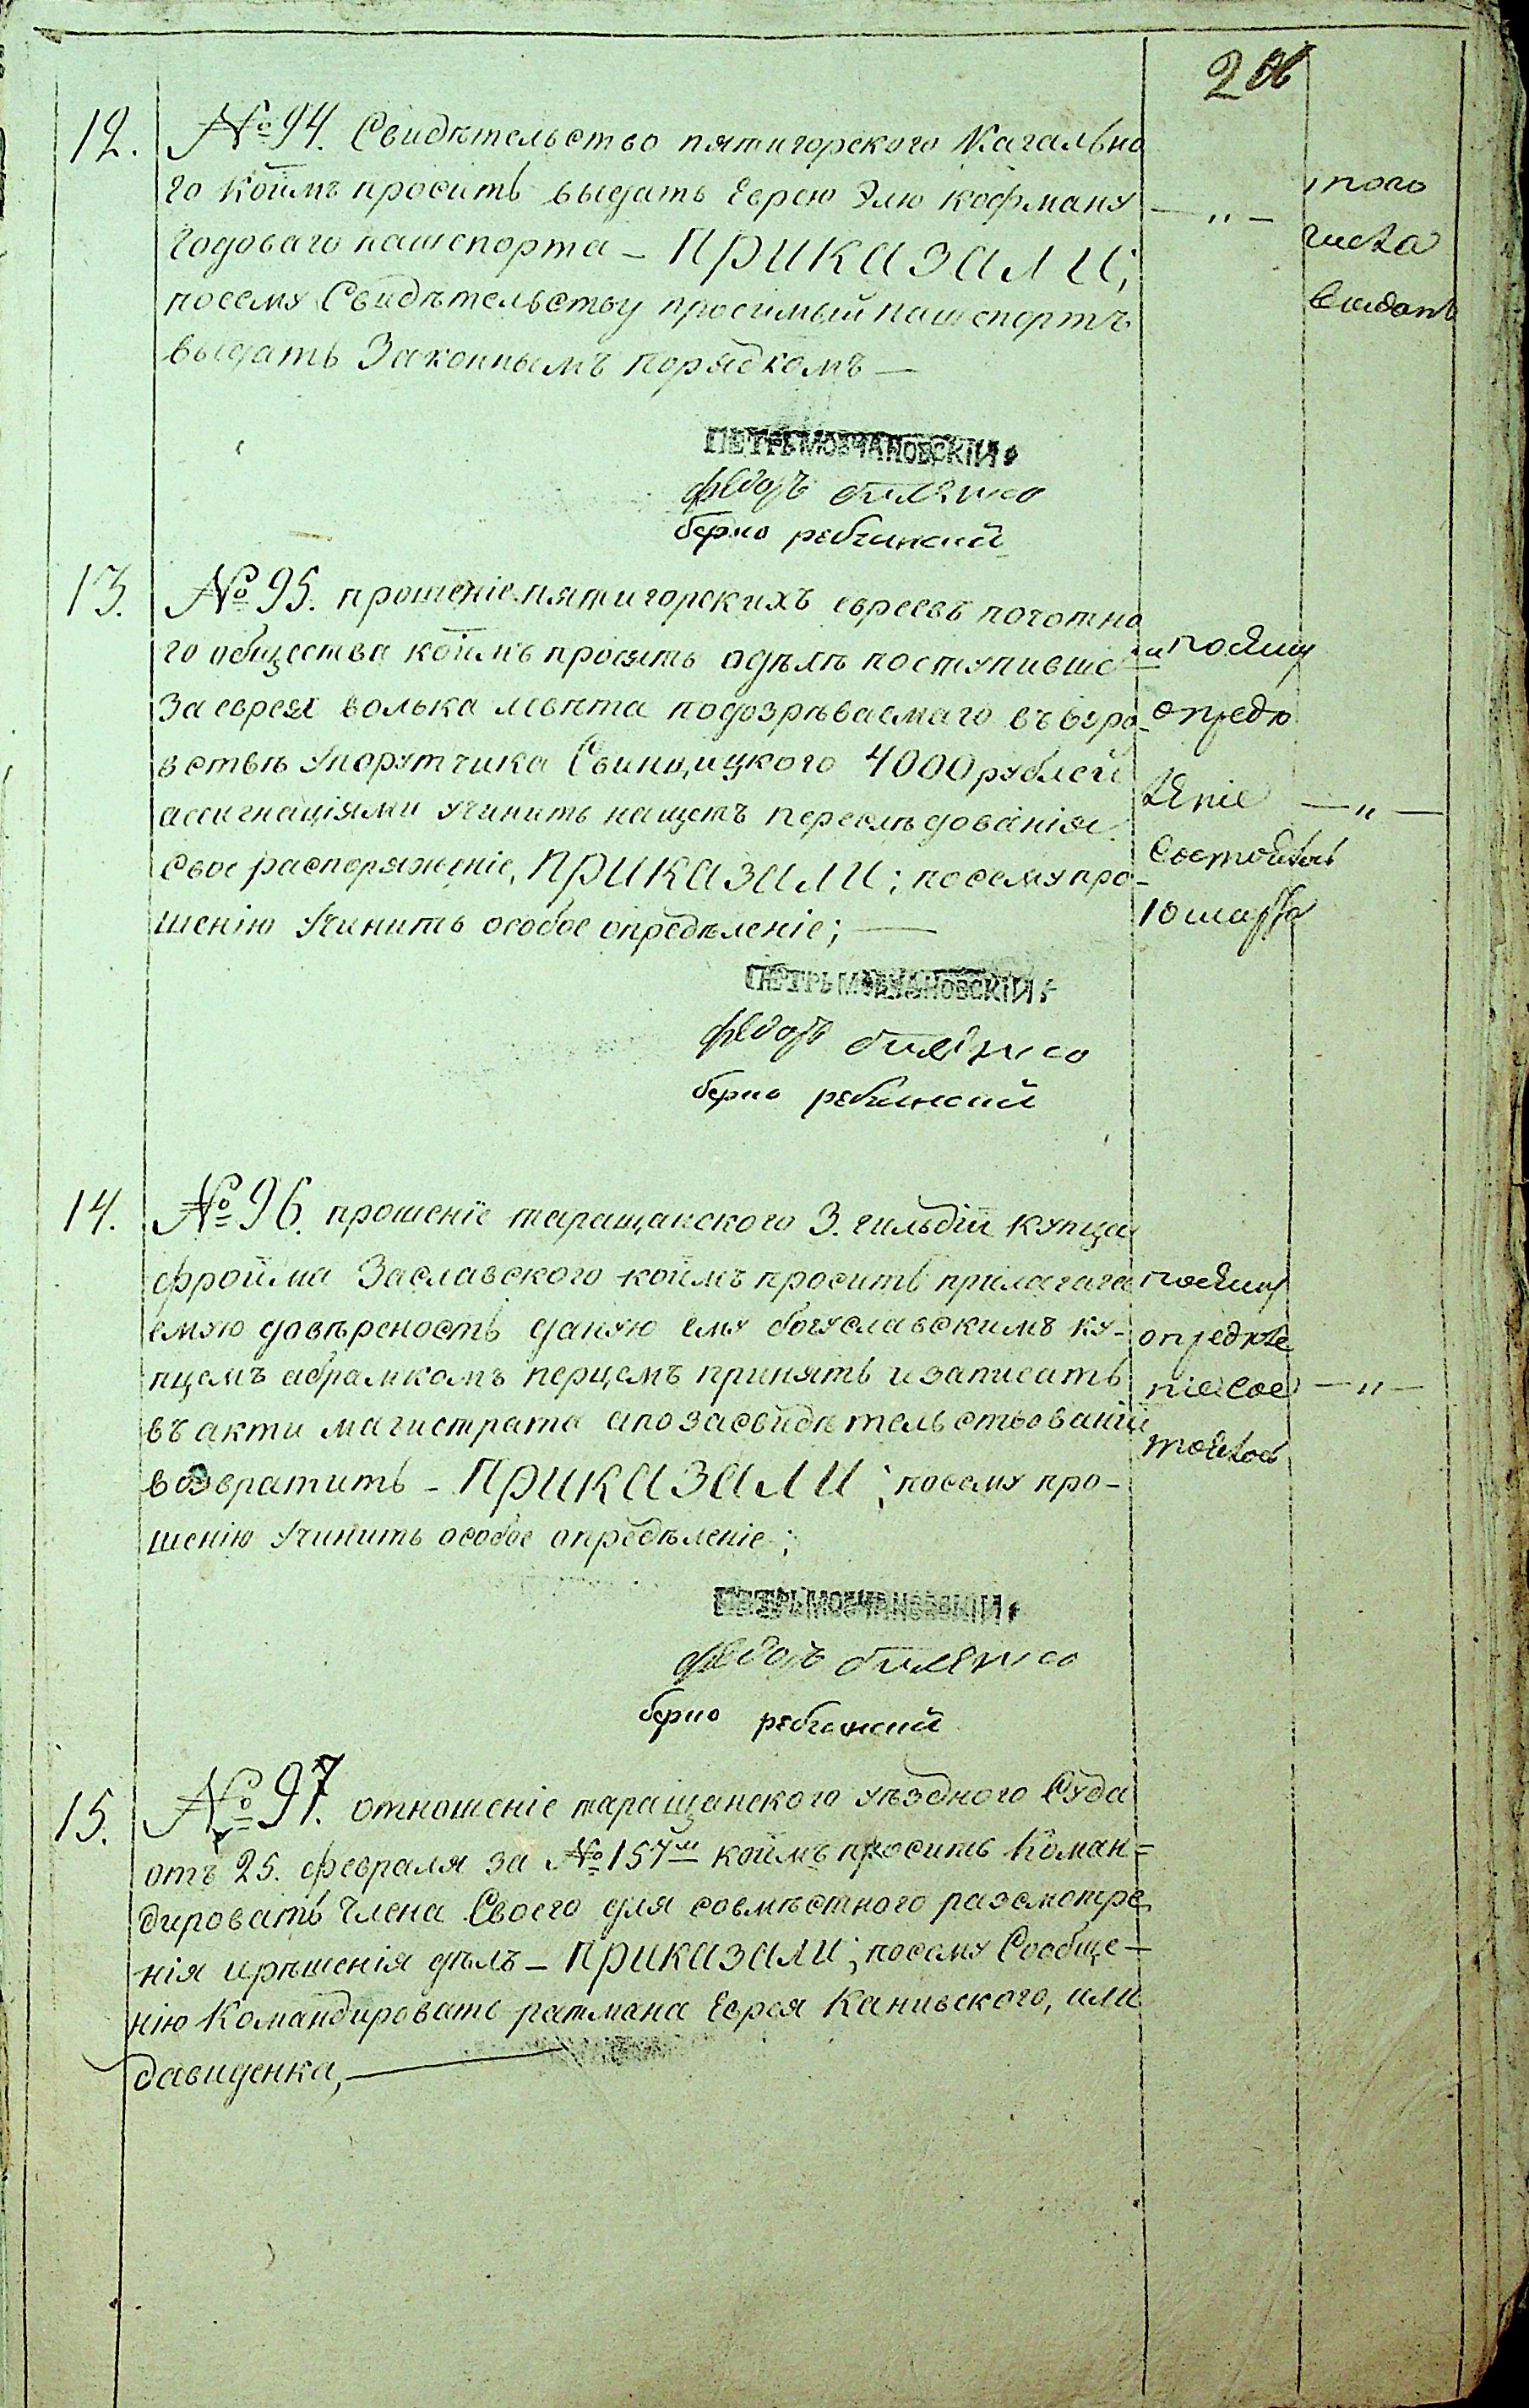 12. № 94. Свидѣтельство пятигорского Кагально
го коимъ просить выдать Еврею Элю кофману
годоваго пашспорта – ПРИКАЗАЛИ;
посему Свидѣтельству просимый пашспортъ
выдать Законнымъ порядкомъ —
— „ —
того
числа
выданъ
ПЕТРЪ МОВЧАНОВСКІЙ
федоръ
берко
13. № 95. прошеніе пятигорскихъ евреевъ
го общества коимъ просятъ
За еврея волька подозрѣваемаго въ воро-
вствѣ Упорутчика 4000 рублей
ассигнаціями учинить нащетъ переслѣдованія
Свое распоряженіе, ПРИКАЗАЛИ; посему про-
шенію Учинить особое опредѣленіе; —
посему
опредѣ
леніе — „ —
состоялось
10 марта
ПЕТРЪ МОВЧАНОВСКІЙ
федоръ
берко
14. № 96. прошеніе таращанского 3. гильдіи купца
фройма Заславского коимъ просить прилагага
емую довѣреность даную ему богуславскимъ ку-
пцемъ абрамкомъ перцемъ принять и записать
въ акти магистрата а по засвидѣтельствованіи
возвратить – ПРИКАЗАЛИ; посему про-
шенію Учинить особое опредѣленіе;
посему
опредѣле
ніе сос — „ —
тоялось
ПЕТРЪ МОВЧАНОВСКІЙ
федоръ
берко
15. № 97. отношеніе таращанского уѣздного Суда
отъ 25. февраля за № 157м коимъ просить Коман-
дировать Члена Своего для совмѣстного разсмотре
нія и рѣшенія дѣлъ – ПРИКАЗАЛИ; посему Сообще-
нію Командировать ратмана Еврея Канивского, или
давиденка, —